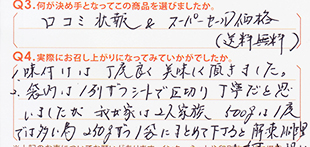 Q3.何が決め手となってこの商品を選びましたか。
口コミ 状態 & スーパーセール価格
(送料無料)
Q4.実際にお召し上がりになってみていかがでしたか。
1.味付けは丁度良く 美味しく頂きました。
2.袋内は1列ずつシートで区切り 丁寧だと思
いましたが 我が家は2人家族 500gは1度
では多い為 250gずつ1袋にまとめて下さると 解凍